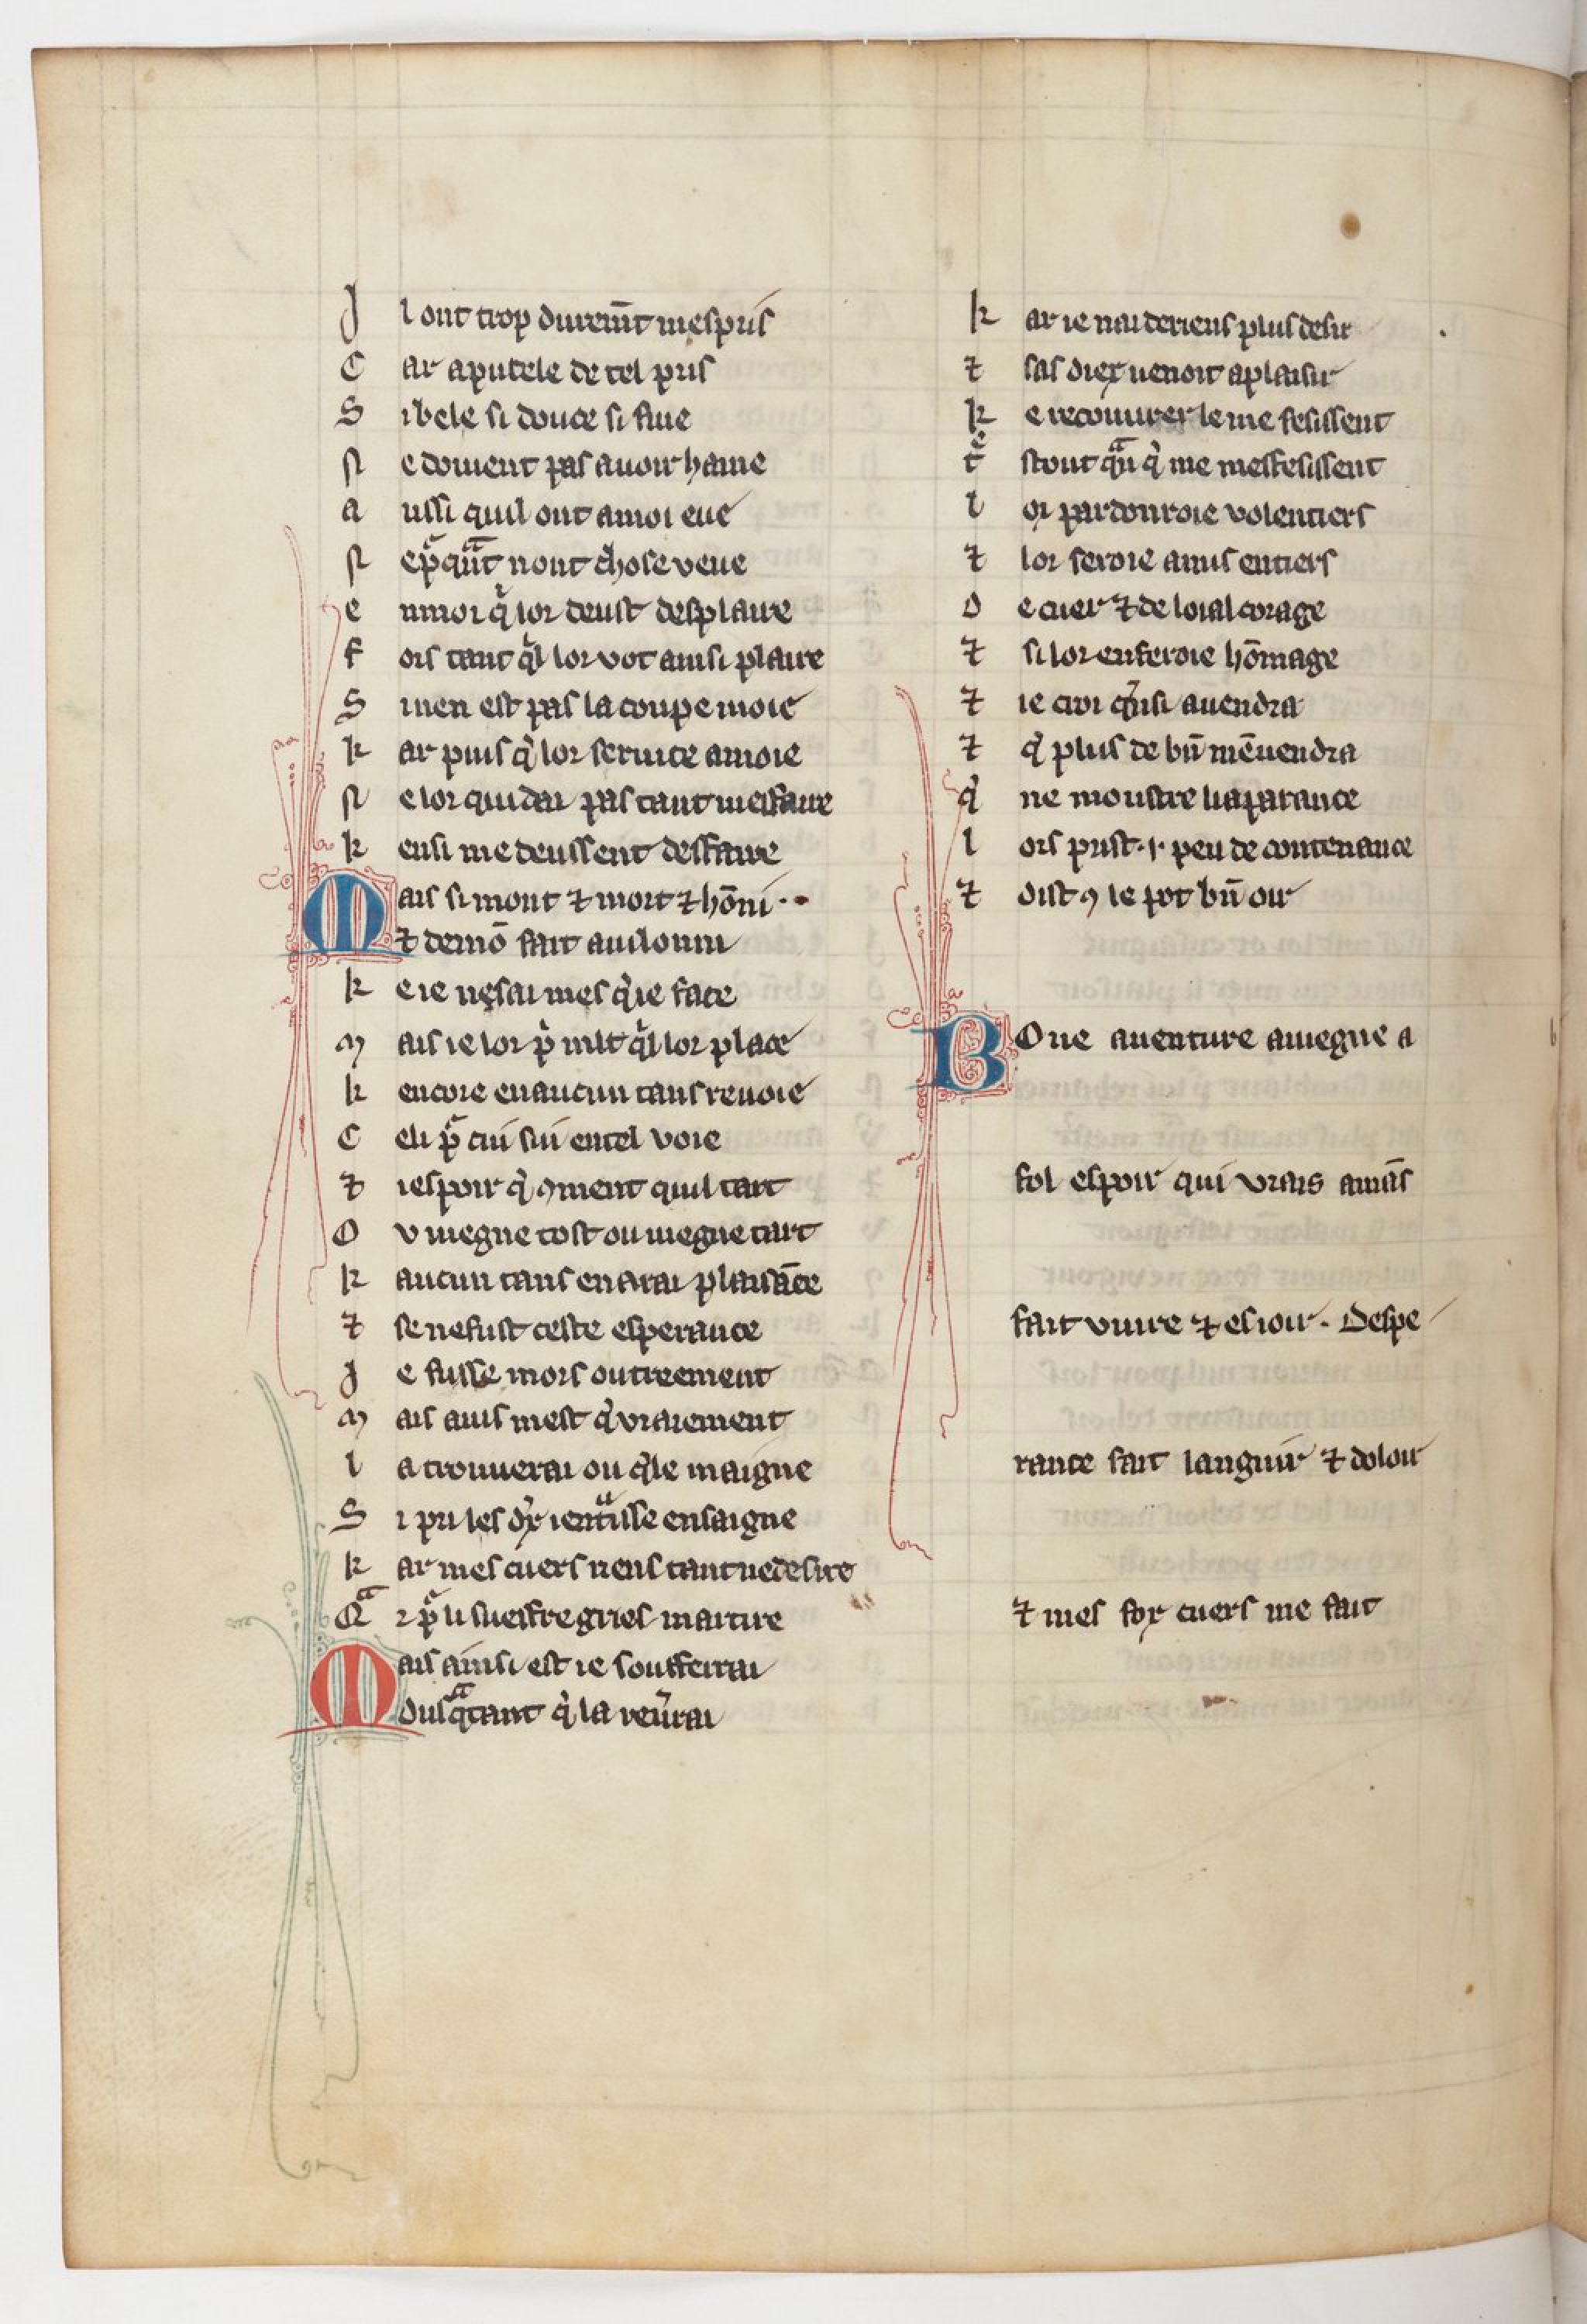 J l ont trop durem̄t mespris
C ar apucele de tel pris
S i bele si douce si fine
N e doiuent pas auoir haine
a ussi quil ont amoi eue
N e pͥ qͣnt nont chose veue
e nmoi qͥ lor deust desplaire
f ors tant qͥl lor vot ainsi plaire
S i nen est pas la coupe moie
k ar puis qͥ lor seruice amoie
N e lor quidai pas tant mesfaire
k ensi me deussent desfaire
M ais si mont ⁊ mort ⁊ hōni ··
⁊ demō fait anilonni
k e ie nesai mes qͥ ie face
M ais ie lor pͥ mlt qͥl lor place
k encore enaucun tans reuoie
C eli pͥ cui sui entel voie
⁊ iespoir qͥ ꝯment quil tart
O v uiegne tost ou uiegne tart
k aucun tans enarai plaisāce
⁊ se nefust ceste esperance
J e fusse mors outreement
M ais auis mest qͥ vraiement
l a trouuerai ou qͥle maigne
S i pri les dͥx ientͣisse ensaigne
k ar mes cuers riens tant nedesire
Qͣ i pͥ li sueffre gries martire
M ais ainsi est ie soufferrai
Dusqͣ tant qͥ la reu̓rai
k ar ie nai deriens plus desir
⁊ sas diex uenoit aplaisir
k e recouurer le me fesissent
ē stout qͣn qͥ me mesfesissent
l or pardonroie volentiers
⁊ lor seroie amis entiers
D e cuer ⁊ de loial corage
⁊ si lor enferoie hōmage
⁊ ie croi qͥnsi auendra
⁊ qͥ plus de bn̄ mēuendra
qͥ ne moustre li aparance
l ors prist ·i· peu de contenance
⁊ dist ꝯ le pot bn̄ oir
BOne auenture auiegne a
fol espoir qui vrais amās
fait viure ⁊ esioir. Despe
rance fait languir ⁊ doloir
⁊ mes fox cuers me fait